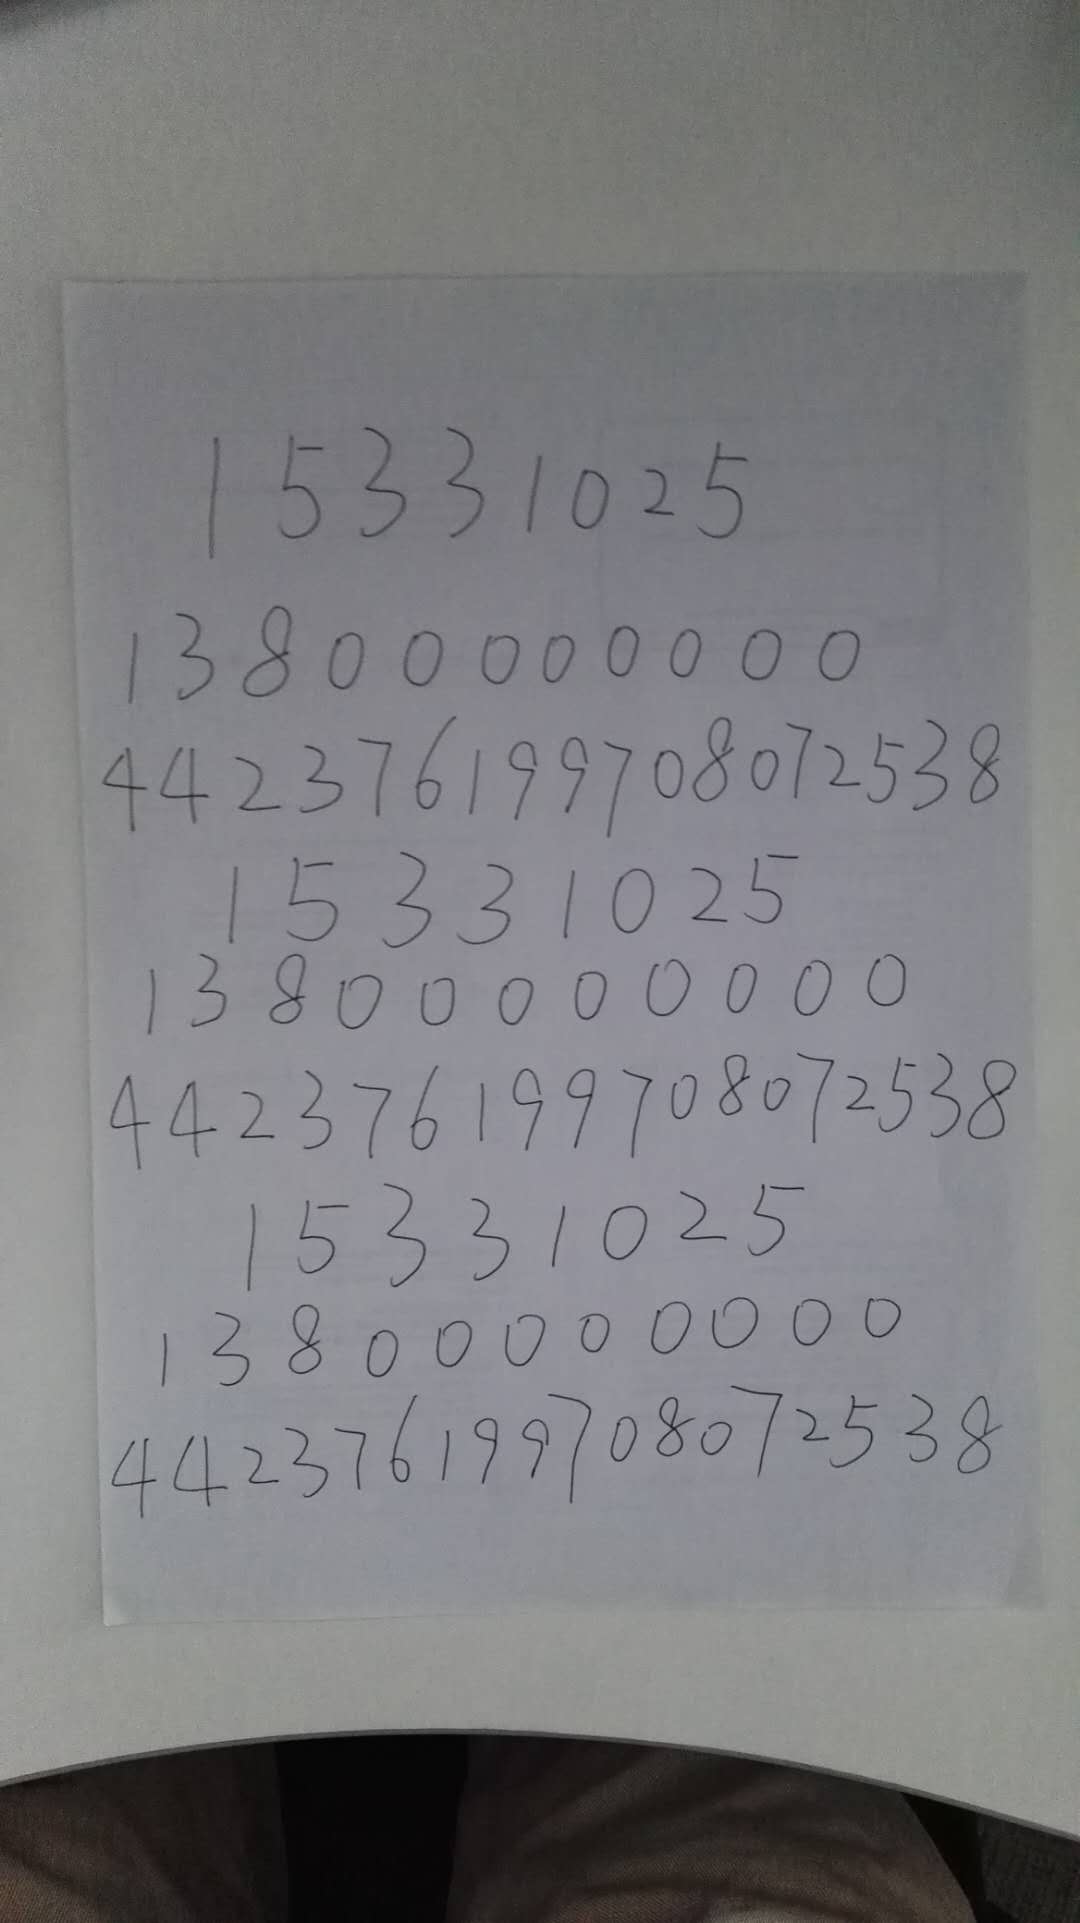 15331025
13800000000
442376199708072538
15331025
13800000000
442376199708072538
15331025
13800000000
442376199708072538